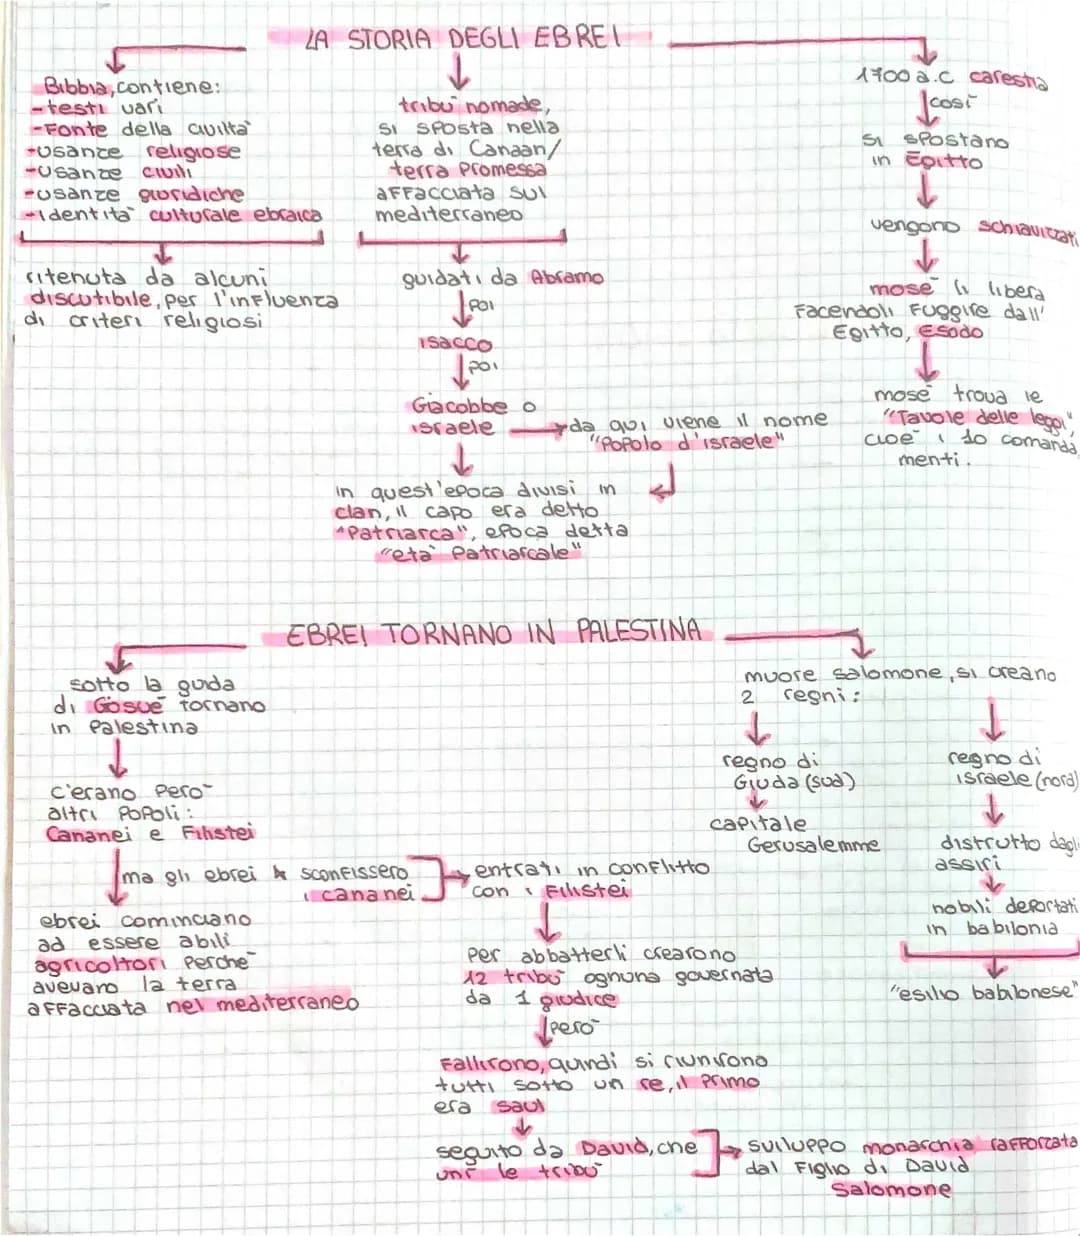 LA STORIA DEGLI EBREI
Bibbia, contiene:
-testi vari
-Fonte della civiltà
-usanze religiose
-usanze civili
-usanze giuridiche
-identità culturale ebraica
ritenuta da alcuni
discutibile, per l'influenza
di criteri religiosi
tribù nomade,
si sposta nella
terra di Canaan/
terra Promessa
affacciata sul
mediterraneo
guidati da Abramo
poi
isacco
poi
Giacobbe o
israele
da qui viene il nome
"Popolo d'israele"
in quest'epoca divisi in
clan, il capo era detto
"Patriarca", epoca detta
"età Patriarcale"
1700 a.C carestia
così
si spostano
in Egitto
vengono schiavizzati
mosè li libera
Facendoli Fuggire dall'
Egitto, Esodo
mosè trova le
"Tavole delle leggi",
cioè i 10 comanda
menti.
EBREI TORNANO IN PALESTINA
sotto la guida
di Giosuè tornano
in Palestina
c'erano Però
altri Popoli:
Cananei e Filistei
ma gli ebrei sconfissero
i cananei
ebrei cominciano
ad essere abili
agricoltori Perchè
avevano la terra
affacciata nel mediterraneo
entrati in conflitto
con i Filistei
Per abbatterli crearono
12 tribù ognuna governata
da 1 giudice
però
Fallirono, quindi si riunirono
tutti sotto un re, il Primo
era Saul
seguito da David, che
unì le tribù
sviluppo monarchia rafforzata
dal Figlio di David
Salomone
muore Salomone, si creano
2 regni:
regno di
Giuda (sud)
capitale
Gerusalemme
regno di
israele (nord)
distrutto dagli
assiri
nobili deportati
in babilonia
"esilio babilonese"